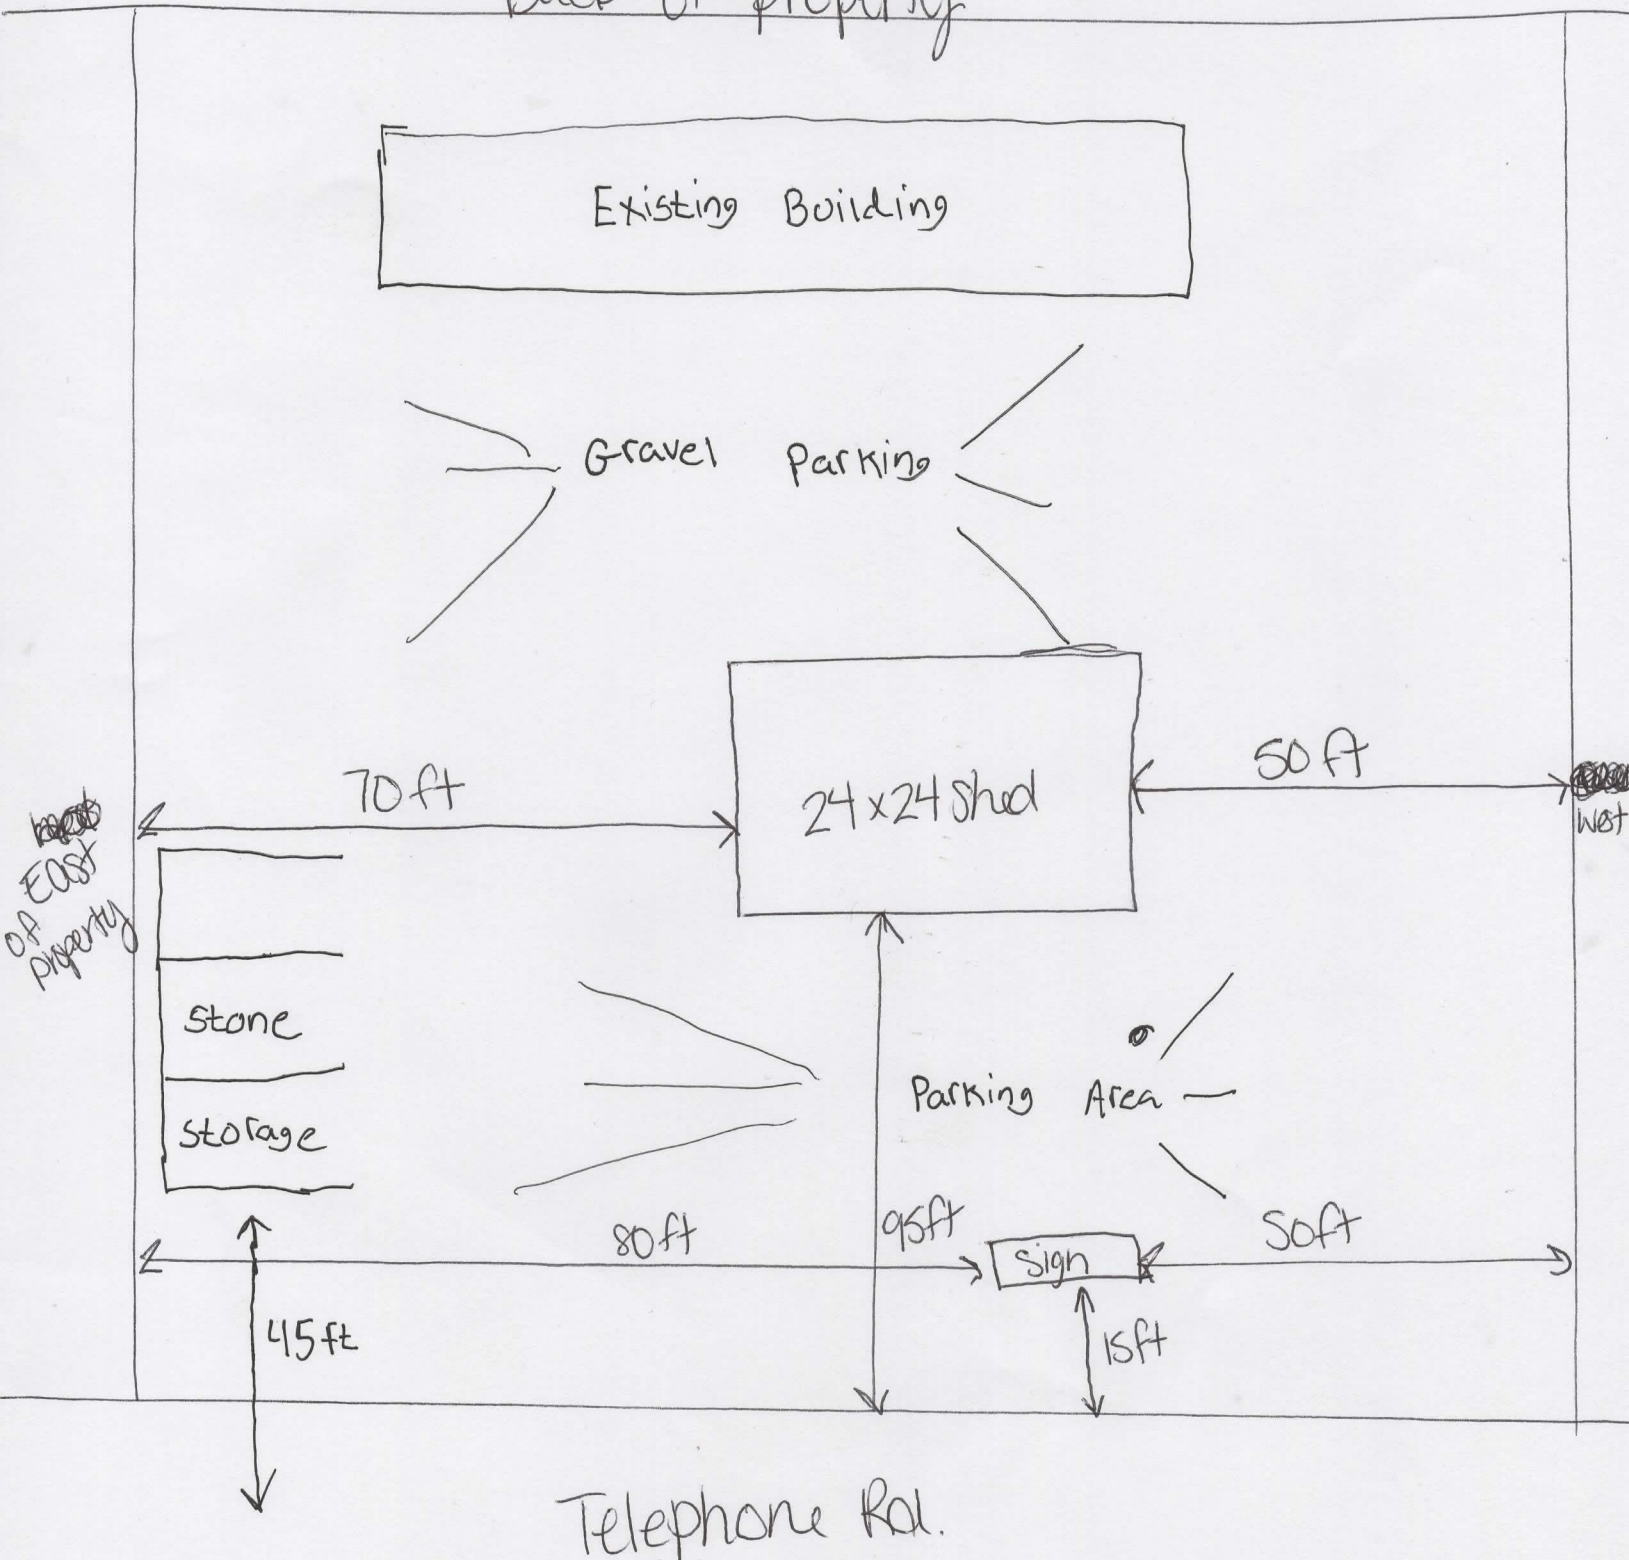 Back of property
Existing Building
Gravel Parking
50 ft
70 ft
24 x 24 Shed
West
East
of
Property
Stone
Parking Area
Storage
80 ft
95 ft
Sign
50 ft
45 ft
15 ft
Telephone Rd.